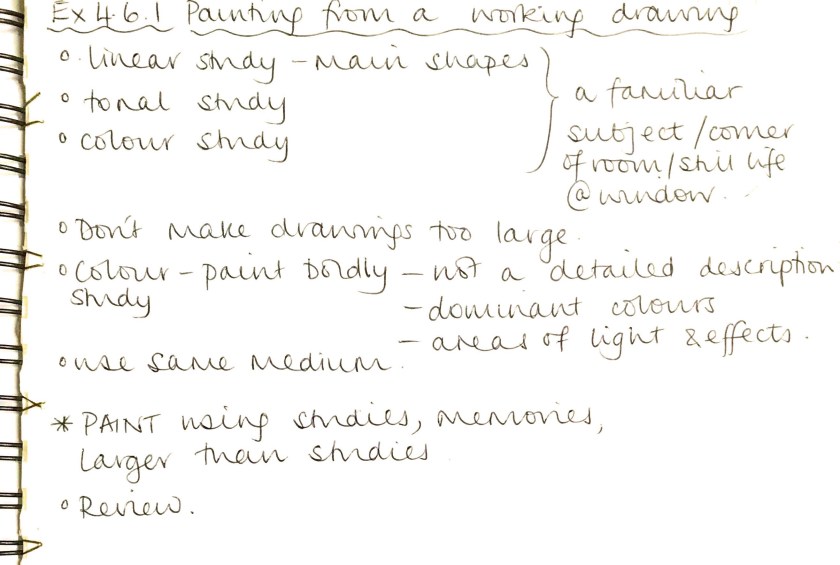 Ex 4.6.1 Painting from a working drawing
° linear study - main shapes
° tonal study
° colour study
a familiar
subject / corner
of room / still life
@ window.
° Don't make drawings too large.
° Colour - paint boldly - not a detailed description
study
- dominant colours
- areas of light & effects.
° use same medium.
* PAINT using studies, memories,
larger than studies
° Review.